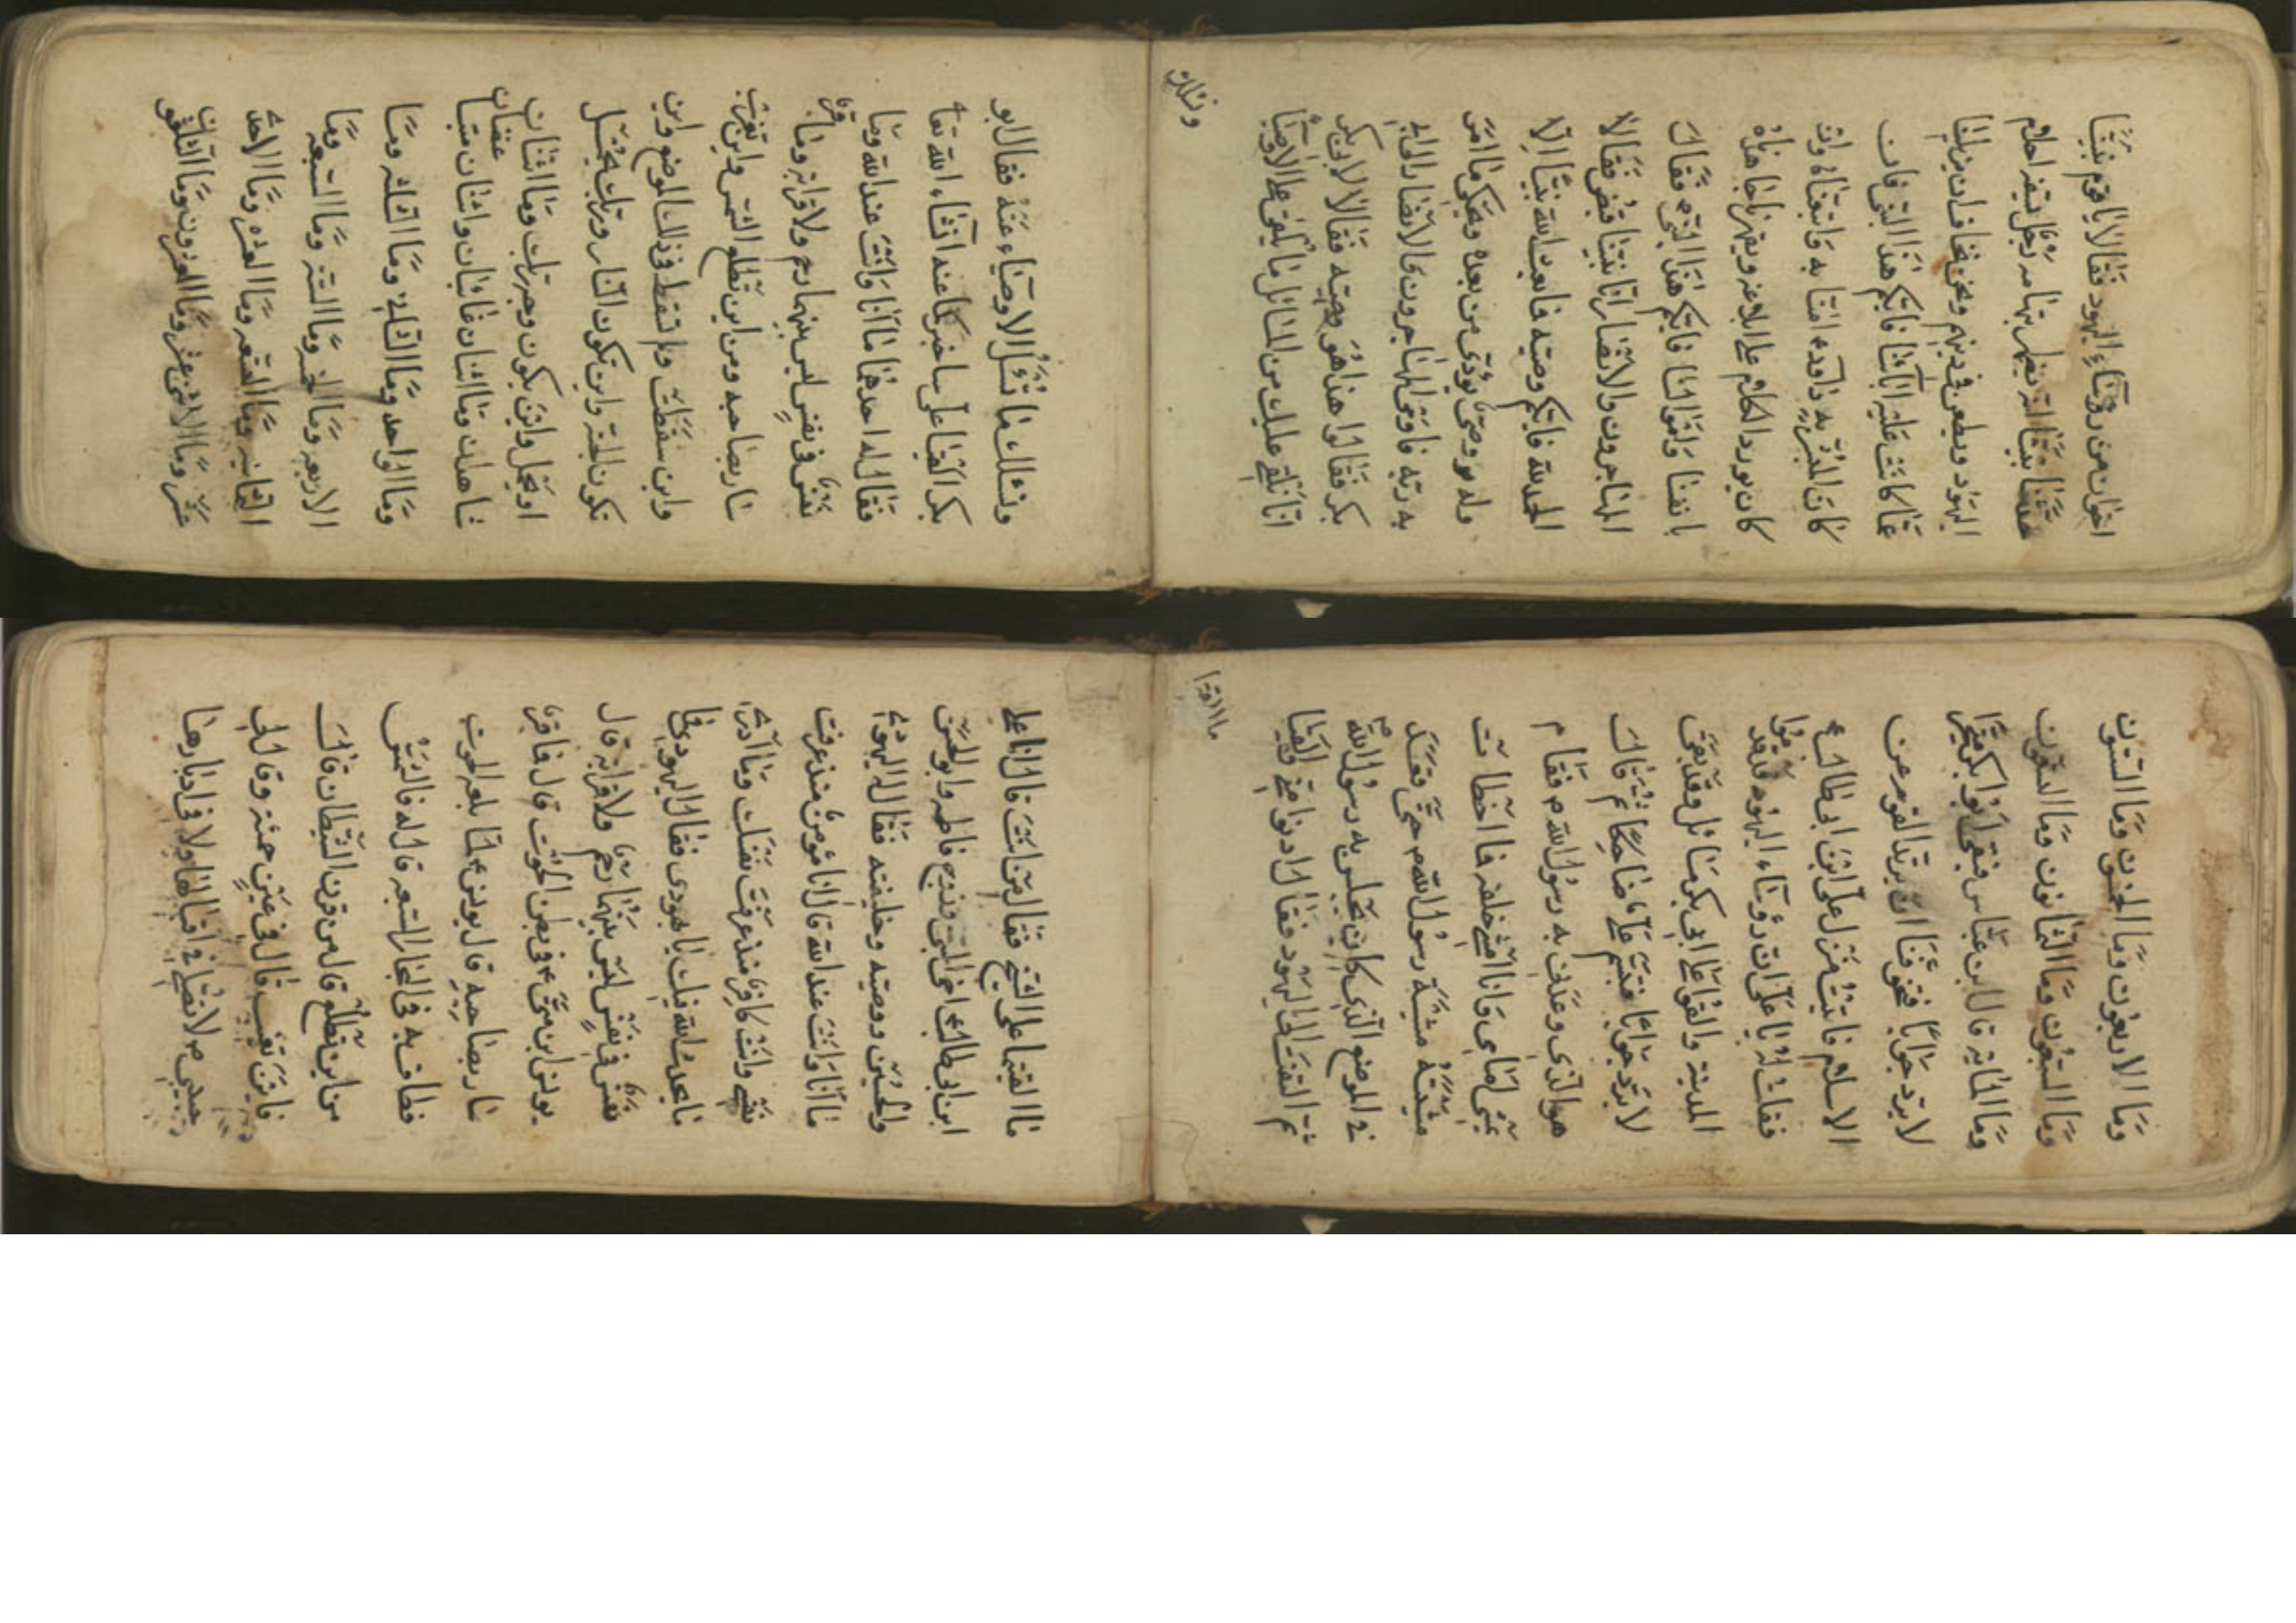 اخوان من رؤساء اليهود فقالا يا قوم نبيّنا
حدّثنا انه يظهر بتهامه رجل يسفه احلام
اليهود ويطعن في دينهم ونحن نخاف ان يزيلنا
عمّا كانت عليه آباؤنا فايّكم هذا النبي فان
كان المبشّر به داود ع امنّا به واتبعناه وان
كان يورد الكلام على ابلاغه ويقهرنا جاهدناه
بانفسنا واموالنا فايّكم هذا النبي فقال
المهاجرون والانصار انّ نبيّنا قبض فقالا
الحمد لله فايّكم وصيّه فما بعث الله نبيّا الّا
وله وصيّ يؤدّى من بعده ويحكى ما امره
به ربّه فاومى المهاجرون والانصار الى ابي
بكر فقالوا هذا هو وصيّه فقالا لابي بكر
انّا نلقي عليك من المسائل ما يلقى على الاوصيآء
ونسئلك
ونسئلك عمّا تسئل الاوصياء عنه فقال ابو
بكر القيا عليّ ساخبركما عنه انشاء الله تعا
فقال له احدهما ما انا وانت عند الله وما
نفس في نفس ليس بينهما رحم ولا قرابه وما قبر
سار بصاحبه ومن اين تطلع الشمس واين تغرب
واين سقطت ولم تسقط في ذلك الموضع واين
تكون الجنة واين تكون النار وربك يحمل
او يحمل واين يكون وجه ربك وما اثنان
شاهدان وما اثنان غائبان واثنان متباغضان
وما الواحد وما الثاني وما الثلثه وما
الاربعه وما الخمسه وما الستة وما السبعه وما
الثمانيه وما التسعه وما العشره وما الاحد
عشر وما الاثنى عشر وما العشرون وما الثلثون
وما الاربعون وما الخمسون وما الستّون
وما السبعون وما الثمانون وما التسعون
وما المايه قال ابن عباس فبقى ابو بكر متحيّرا
لا يردّ جوابا فتخوّفنا ان يرتد القوم عن
الاسلام فاتيت منزل علي بن ابي طالب ع
فقلت له يا علي انّ رؤساء اليهود قد قدموا
المدينة والقوا على ابي بكر مسائل وقد بقى
لا يردّ جوابا فتبسم علي ع ضاحكا ثم قال
هو الّذي وعدني به رسول الله ص فقام
يمشي امامي وانا امشي خلفه فما اخطات
مشيته مشية رسول الله ص حتّى قعد
في الموضع الذي كان يجلس به رسول الله ص
ثم التفت الى اليهود فقال ادنوا منّي والقيا
ما القيتما على الشيخ فقالا من انت قال انا علي
ابن ابي طالب اخى النبى وزوج فاطمه وابو الحسن
والحسين ووصيه وخليفته فقال له اليهودى
ما انا وانت عند الله قال انا مؤمن منذ عرفت
نفسي وانت كافر منذ عرفت نفسك وما ادرى
ما يحدث الله فيك يا يهودي فقال اليهودي فما
نفس في نفس ليس بينهما رحم ولا قرابه قال
يونس ابن متى ع في بطن الحوت قال فما قبر
سار بصاحبه قال يونس ع لمّا بلعه الحوت
فطاف به في البحار السبعه قال له فالشمس
من اين تطلع قال من قرن الشيطان قال
فاين تغيب قال في عين حمئة وقال لي
حبيبي ص لا تصلي في اقبالها ولا في ادبارها